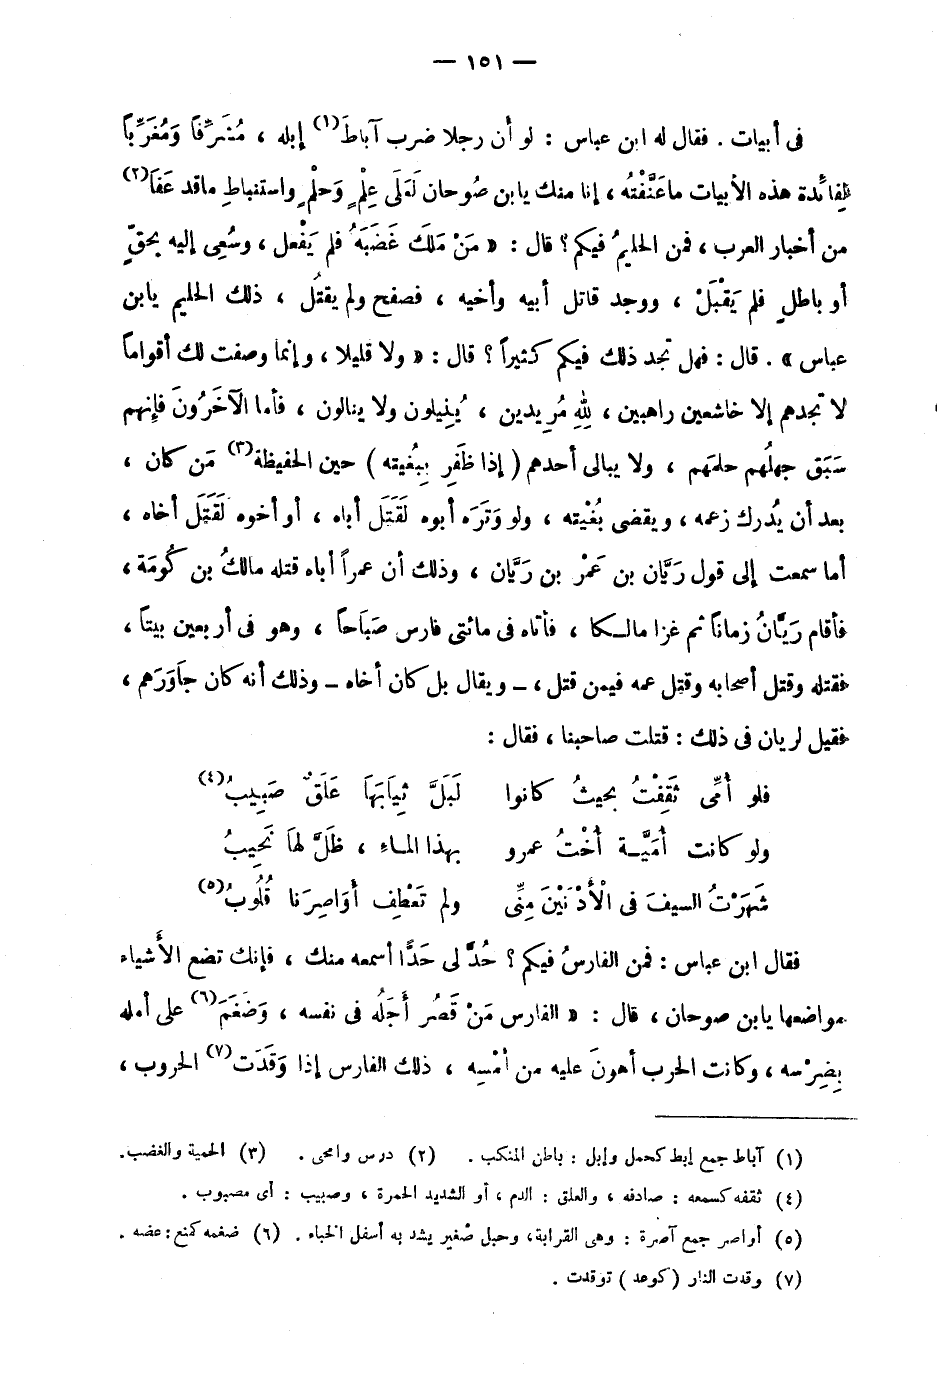 — ١٥١ —
فى أبيات . فقال له ابن عباس : لو أن رجلا ضرب آباطَ(١) إبله ، مُشَرِّقاً وَمُغَرِّباً
لفائدة هذه الأبيات ماعَنَّفْتُه ، إنا منك يابن صُوحان لَعَلَى عِلْمٍ وَحِلْمٍ واستنباطِ ماقد عَفَا(٢)
من أخبار العرب ، فمن الحليمُ فيكم ؟ قال : « مَنْ مَلَكَ غَضَبَهُ فلم يَفْعل ، وسُعِى إليه بحقٍّ
أو باطلٍ فلم يَقْبَلْ ، ووجد قاتل أبيه وأخيه ، فصفح ولم يقتُل ، ذلك الحليم يابن
عباس » . قال : فهل تجد ذلك فيكم كثيراً ؟ قال : « ولا قليلا ، وإنما وصفت لك أقواماً
لا تجدهم إلا خاشعين راهبين ، لِلهِ مُريدين ، يُنِيلون ولا ينالون ، فأما الآخَرُونَ فإنهم
سَبَق جهلُهم حلمَهم ، ولا يبالى أحدهم ( إذا ظَفَرِ ببُغيته ) حين الحفيظة(٣) مَن كان ،
بعد أن يُدرك زعمه ، ويقضى بُغْيته ، ولو وَتَرَه أبوه لَقَتَل أباه ، أو أخوه لَقَتَل أخاه ،
أما سمعت إلى قول رَيَّان بن عَمْر بن رَيَّان ، وذلك أن عمراً أباه قتله مالكُ بن كُومَة ،
فأقام رَيَّانُ زماناً ثم غزا مالكا ، فأتاه فى مائتى فارس صَبَاحاً ، وهو فى أربعين بيتاً ،
فقتله وقتل أصحابه وقتل عمه فيمن قتل ، ـ ويقال بل كان أخاه ـ وذلك أنه كان جَاوَرَهم ،
فقيل لريان فى ذلك : قتلت صاحبنا ، فقال :
فلو أُمِّى ثَقِفْتُ بحيثُ كانوا لَبَلَّ ثِيَابَهَا عَلَقٌ صَبِيبُ(٤)
ولو كانت أُمَيَّـة أُخْتُ عمرو بهذا الماء ، ظَلَّ لها نَحِيبُ
شَهَرْتُ السيفَ فى الْأَدْنَيْنَ مِنِّى ولم تَعْطِف أَوَاصِرَنا قُلُوبُ(٥)
فقال ابن عباس : فمن الفارسُ فيكم ؟ حُدَّ لى حَدًّا أسمعه منك ، فإنك تضع الأَشياء
مواضعها يابن صوحان ، قال : « الفارس مَنْ قَصُر أَجَلُه فى نفسه ، وَضَغَمَ(٦) على أمله
بِضِرْسه ، وكانت الحرب أهونَ عليه من أمْسِه ، ذلك الفارس إذا وَقَدَت(٧) الحروب ،
(١) آباط جمع إبط كحمل وإبل : باطن المنكب . (٢) درس وامحى . (٣) الحمية والغضب .
(٤) ثقفه كسمعه : صادفه ، والعلق : الدم ، أو الشديد الحمرة ، وصبيب : أى مصبوب .
(٥) أواصر جمع آصرة : وهى القرابة، وحبل صغير يشد به أسفل الخباء . (٦) ضغمه كمنع : عضه .
(٧) وقدت النار (كوعد ) توقدت .